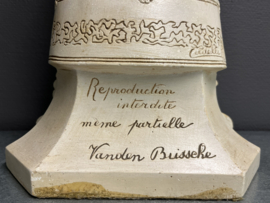 Reproduction
interdite
même partielle
Vanden Bussche